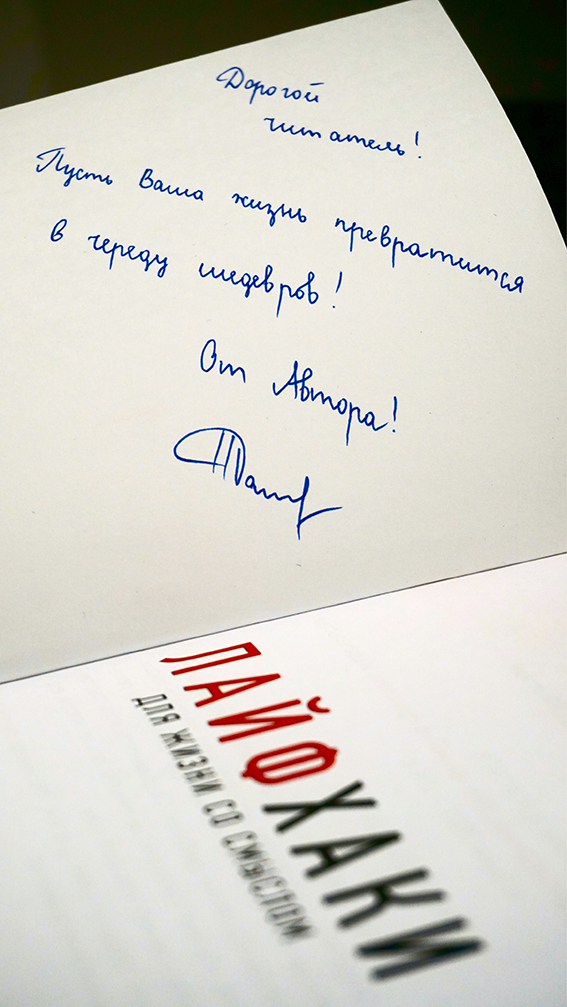 Дорогой
читатель!
Пусть Ваша жизнь превратится
в череду шедевров!
От Автора!
ЛАЙФХАКИ
ДЛЯ ЖИЗНИ СО СМЫСЛОМ